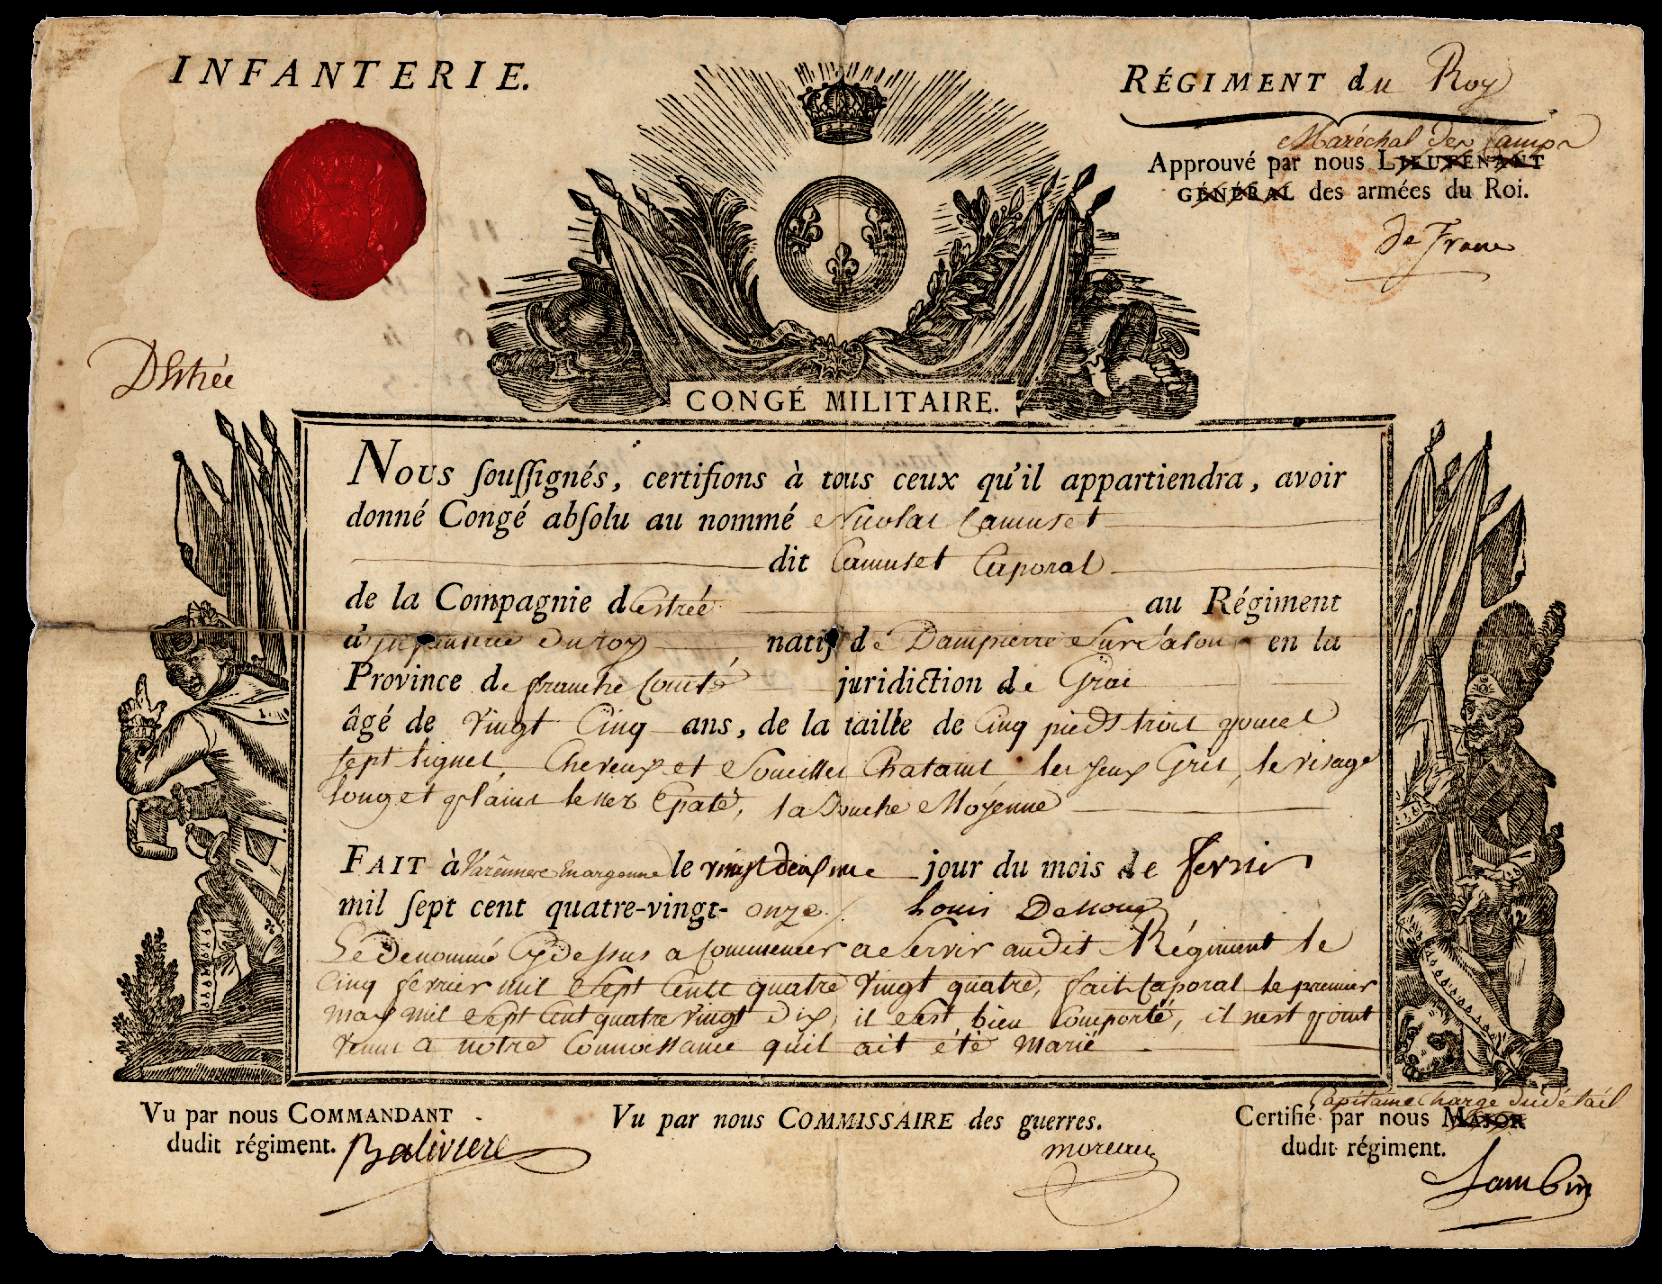 INFANTERIE.
RÉGIMENT du Roy
Maréchal des Camps
Approuvé par nous LIEUTENANT
GÉNÉRAL des armées du Roi.
de Franc
DEstrée
CONGÉ MILITAIRE.
Nous ſouſſignés, certifions à tous ceux qu'il appartiendra, avoir
donné Congé abſolu au nommé Nicolas Camuset
dit Camuset Caporal
de la Compagnie dEstrée au Régiment
d'infanterie du roy natif de Dampierre Sur Salon en la
Province de franche Comté juridiction de Grai
âgé de vingt Cinq ans, de la taille de Cinq pieds trois pouces
sept lignes Cheveux et Sourcilles Chatains les yeux Gris, le visage
long et plains le nez Epaté, la Bouche Moyenne
FAIT à Varennes en argonne le vingt deuxieme jour du mois de fevrier
mil ſept cent quatre-vingt-onze. Louis
Le Denommé Cy dessus a Commencer a Servir audit Régiment le
Cinq fevrier mil Sept Cent quatre vingt quatre, fait Caporal le premier
may mil Sept Cent quatre vingt dix, il s'est bien Comporté, il n'est point
venu a notre Connoissance qu'il ait été marié
Vu par nous COMMANDANT
dudit régiment. Balivière
Vu par nous COMMISSAIRE des guerres.
moreau
Capitaine Chargé du détail
Certifié par nous MAJOR
dudit régiment.
Jambin